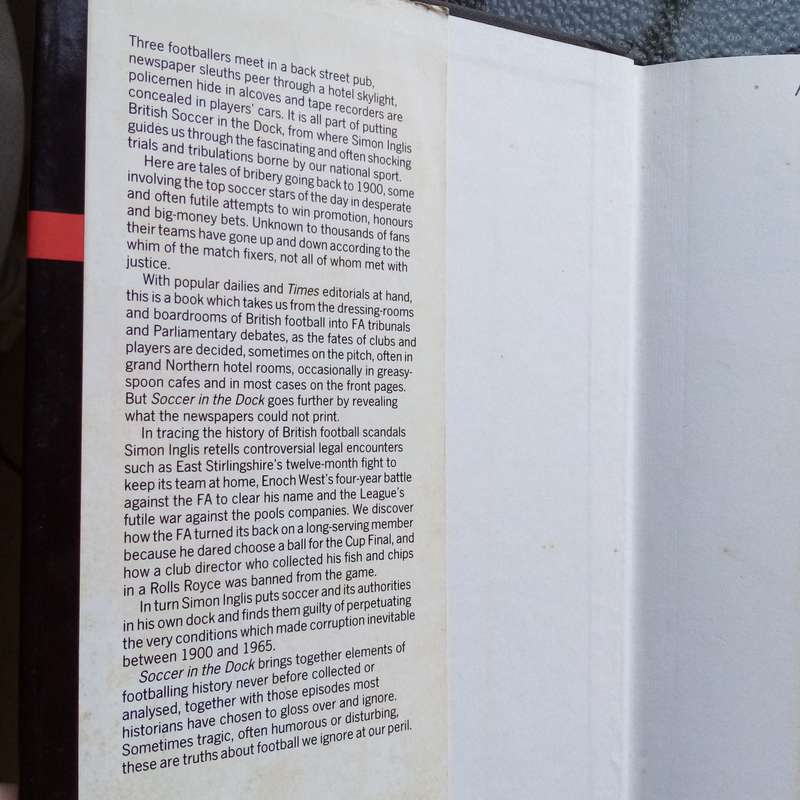 Three footballers meet in a back street pub,
newspaper sleuths peer through a hotel skylight,
policemen hide in alcoves and tape recorders are
concealed in players' cars. It is all part of putting
British Soccer in the Dock, from where Simon Inglis
guides us through the fascinating and often shocking
trials and tribulations borne by our national sport.
Here are tales of bribery going back to 1900, some
involving the top soccer stars of the day in desperate
and often futile attempts to win promotion, honours
and big-money bets. Unknown to thousands of fans
their teams have gone up and down according to the
whim of the match fixers, not all of whom met with
justice.
With popular dailies and Times editorials at hand,
this is a book which takes us from the dressing-rooms
and boardrooms of British football into FA tribunals
and Parliamentary debates, as the fates of clubs and
players are decided, sometimes on the pitch, often in
grand Northern hotel rooms, occasionally in greasy-
spoon cafes and in most cases on the front pages.
But Soccer in the Dock goes further by revealing
what the newspapers could not print.
In tracing the history of British football scandals
Simon Inglis retells controversial legal encounters
such as East Stirlingshire's twelve-month fight to
keep its team at home, Enoch West's four-year battle
against the FA to clear his name and the League's
futile war against the pools companies. We discover
how the FA turned its back on a long-serving member
because he dared choose a ball for the Cup Final, and
how a club director who collected his fish and chips
in a Rolls Royce was banned from the game.
In turn Simon Inglis puts soccer and its authorities
in his own dock and finds them guilty of perpetuating
the very conditions which made corruption inevitable
between 1900 and 1965.
Soccer in the Dock brings together elements of
footballing history never before collected or
analysed, together with those episodes most
historians have chosen to gloss over and ignore.
Sometimes tragic, often humorous or disturbing,
these are truths about football we ignore at our peril.